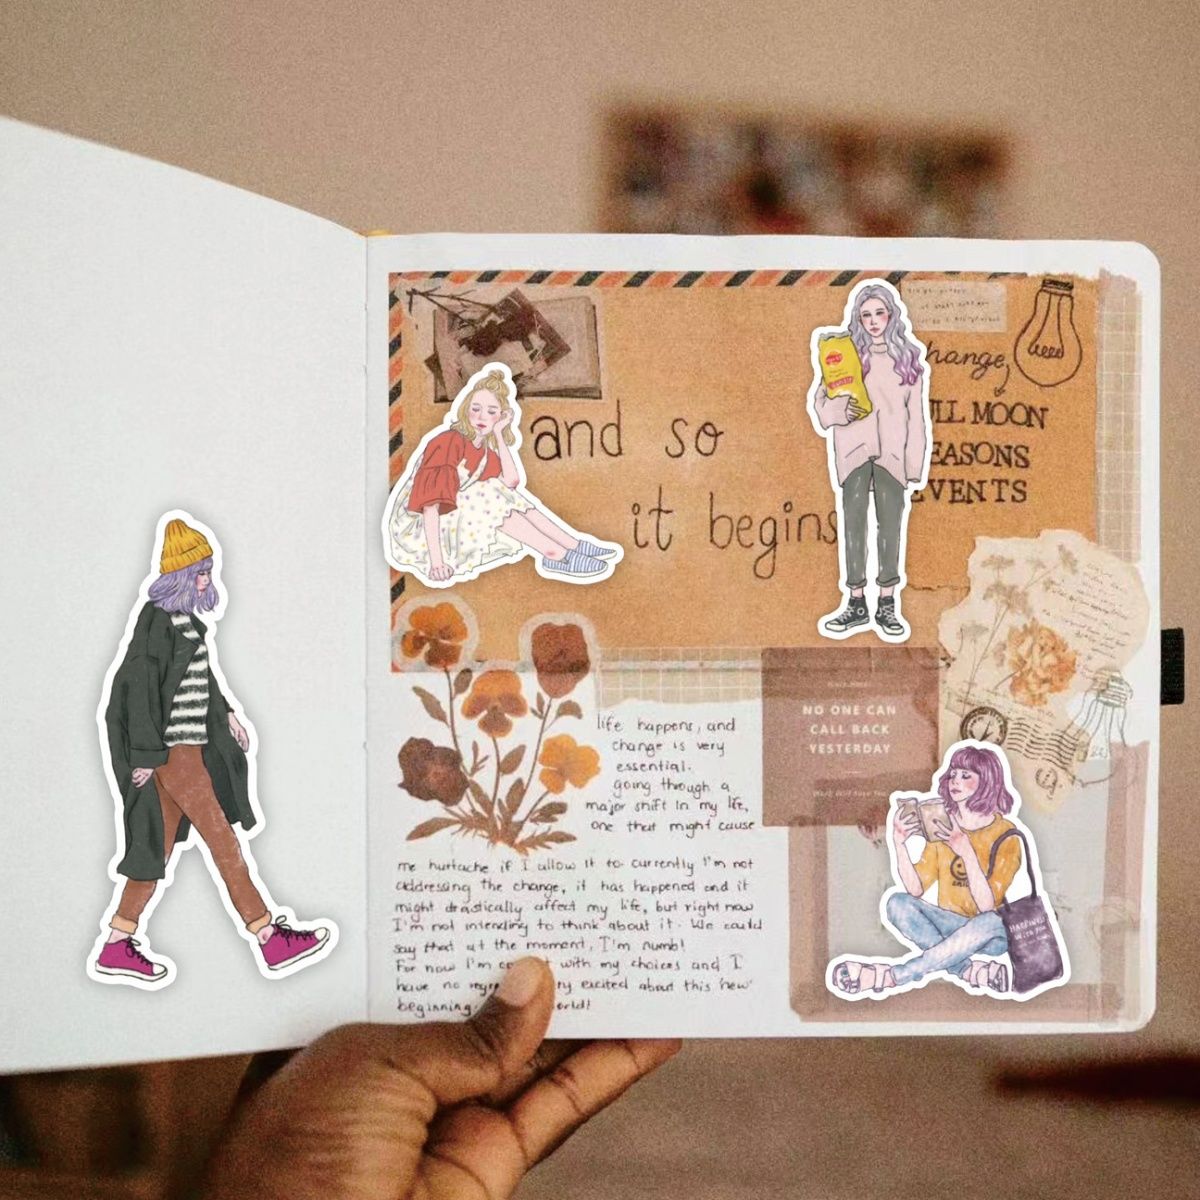 and so
it begins
change,
ULL MOON
EASONS
EVENTS
life happens, and
change is very
essential.
going through a
major shift in my life,
one that might cause
me hurtache if I allow it to. currently I'm not
addressing the change, it has happened and it
might drastically affect my life, but right now
I'm not intending to think about it. We could
say that at the moment, I'm numb!
For now I'm with my choices and I
have no excited about this 'new'
beginning
NO ONE CAN
CALL BACK
YESTERDAY
HAPPINESS
WITH YOU